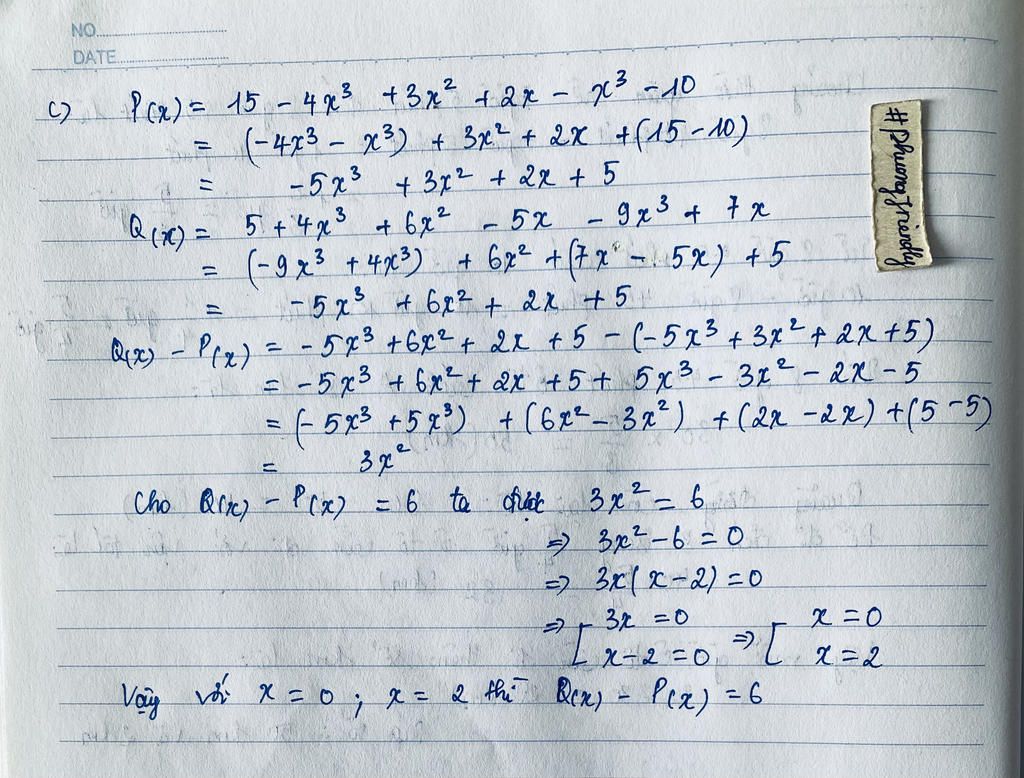 NO
DATE
c) P(x) = 15 - 4x³ + 3x² + 2x - x³ - 10
= (-4x³ - x³) + 3x² + 2x + (15 - 10)
= -5x³ + 3x² + 2x + 5
Q(x) = 5 + 4x³ + 6x² - 5x - 9x³ + 7x
= (-9x³ + 4x³) + 6x² + (7x - 5x) + 5
= -5x³ + 6x² + 2x + 5
Q(x) - P(x) = -5x³ + 6x² + 2x + 5 - (-5x³ + 3x² + 2x + 5)
= -5x³ + 6x² + 2x + 5 + 5x³ - 3x² - 2x - 5
= (-5x³ + 5x³) + (6x² - 3x²) + (2x - 2x) + (5 - 5)
= 3x²
Cho Q(x) - P(x) = 6 ta được 3x² = 6
⇒ 3x² - 6 = 0
⇒ 3x(x - 2) = 0
⇒ [ 3x = 0 ⇒ [ x = 0
x - 2 = 0 x = 2
Vậy với x = 0 ; x = 2 thì Q(x) - P(x) = 6
#phuongfriendly